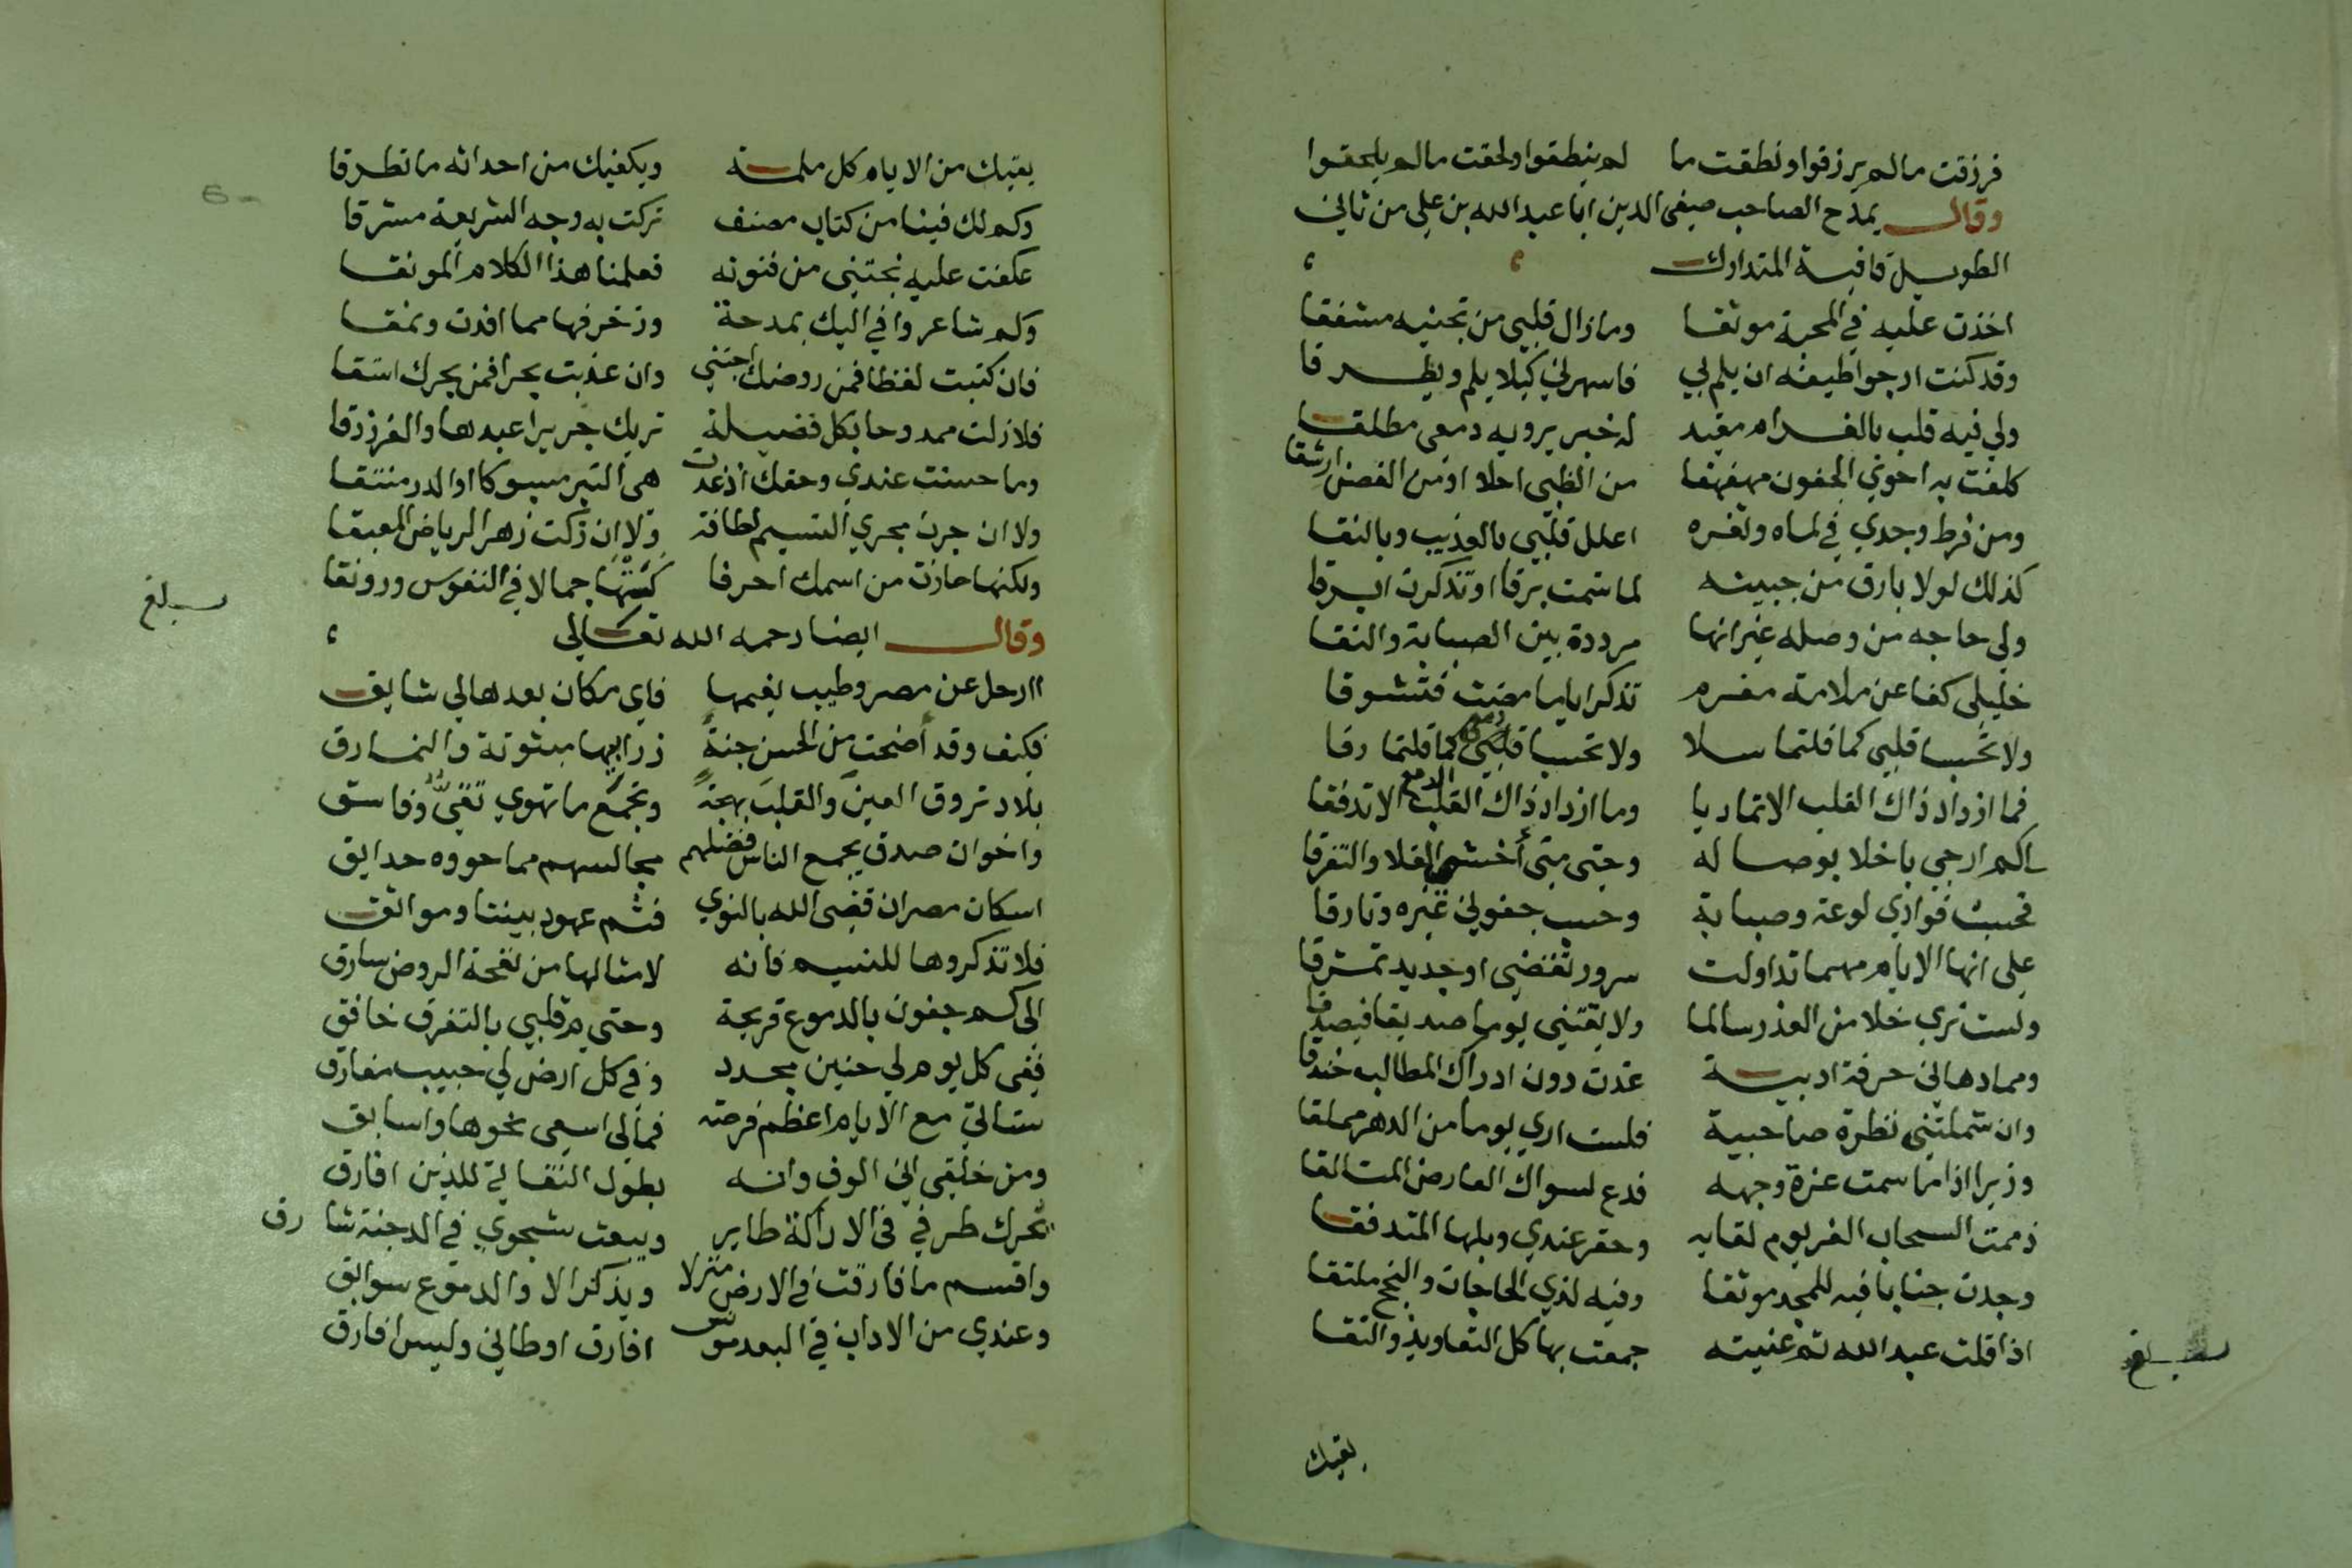 فرزقت ما لم يرزقوا ونطقت ما لم ينطقوا ولحقت ما لم يلحقوا
وقال يمدح الصاحب صفي الدين ابا عبد الله بن علي من ثاني
الطويل قافية المتدارك
اخذت عليه في المحبة موثقا وما زال قلبي من تجنيه مشفقا
وقد كنت ارجو طيفه ان يلم بي فاسهرني كيلا يلم ويطرقا
ولي فيه قلب بالغرام مقيد له خبر يرويه دمعي مطلقا
كلفت به احوي الجفون مهفهفا من الظبي احلا او من الغصن ارشقا
ومن فرط وجدي في لماه وثغره اعلل قلبي بالعذيب وبالنقا
كذلك لولا بارق من جبينه لما شمت برقا او تذكرت ابرقا
ولي حاجه من وصله غير انها مرددة بين الصبابة والتقا
خليلي كفا عن ملامة مغرم تذكر اياما مضت فتشوقا
ولا تحسبا قلبي كما قلتما سلا ولا تحسبا دمعي كما قلتما رقا
فما ازداد ذاك القلب الا تماديا وما ازداد ذاك القلب الدمع الا تدفقا
الى كم ارجي باخلا بوصاله وحتى متى أخشى القلا والتفرقا
فحسب فوادي لوعة وصبابة وحسب جفوني عبره وتارقا
على انها الايام مهما تداولت سرور تقضى او جديد تمزقا
ولست تري خلا من الغدر سالما ولا تقتني يوما صديقا فيصدقا
ومما دهاني حرفة ادبية غدت دون ادراك المطالب خندقا
وان شملتني نظرة صاحبية فلست اري يوما من الدهر مملقا
وزيرا اذا ما شمت غرة وجهه فدع لسواك العارض المتالقا
ذممت السحاب الغر يوم لقايه وحقر عندي وبلها المتدفقا
وجدت جنابا فيه للمجد موثقا وفيه لذي الحاجات والنجح ملتقا
اذا قلت عبد الله ثم عنيته جمعت بها كل التعاويذ والتقا
بلغ
يقيك
يقيك من الايام كل ملمة ويكفيك من احداثه ما تطرقا
وكم لك فينا من كتاب مصنف تركت به وجه الشريعة مشرقا
عكفت عليه نجتني من فنونه فعلمنا هذا الكلام المونقا
وكم شاعر وافي اليك بمدحة وزخرفها مما افدت ونمقا
فان كتبت لفظا فمن روضك اجتني وان عذبت بحرا فمن بحرك استقا
فلا زلت ممدوحا بكل فضيلة تريك جريرا عبدها والفرزدقا
وما حسنت عندي وحقك اذ غدت هي التبر مسبوكا او الدر منتقا
ولا ان جرت مجري النسيم لطافة ولا ان زكت زهر الرياض المعبقا
ولكنها حازت من اسمك احرفا كستها جمالا في النفوس ورونقا
بلغ
وقال ايضا رحمه الله تعالى
اارحل عن مصر وطيب نعيمها فاي مكان بعدها لي شايق
فكيف وقد أضحت من الحسن جنة زرابيها مبثوثة والنمارق
بلاد تروق العين والقلب بهجة وتجمع ما تهوي تقي وفاسق
واخوان صدق يجمع الناس فضلهم مجالسهم مما حووه حدايق
اسكان مصر ان قضى الله بالنوي فثم عهود بيننا ومواثق
فلا تذكروها للنسيم فانه لامثالها من نفحة الروض سارق
الى كم جفون بالدموع قريحة وحتي م قلبي بالتفرق خافق
ففي كل يوم لي حنين مجدد وفي كل ارض لي حبيب مفارق
ستاتي مع الايام اعظم فرحة فمالي اسعى نحوها واسابق
ومن خلقي اني الوف وانه يطول التفاتي للذين افارق
يحرك طرفي في الاراكة طاير ويبعث شجوي في الدجنة شارق
واقسم ما فارقت في الارض منزلا ويذكر الا والدموع سوابق
وعندي من الاداب في البعد مونس افارق اوطاني وليس افارق